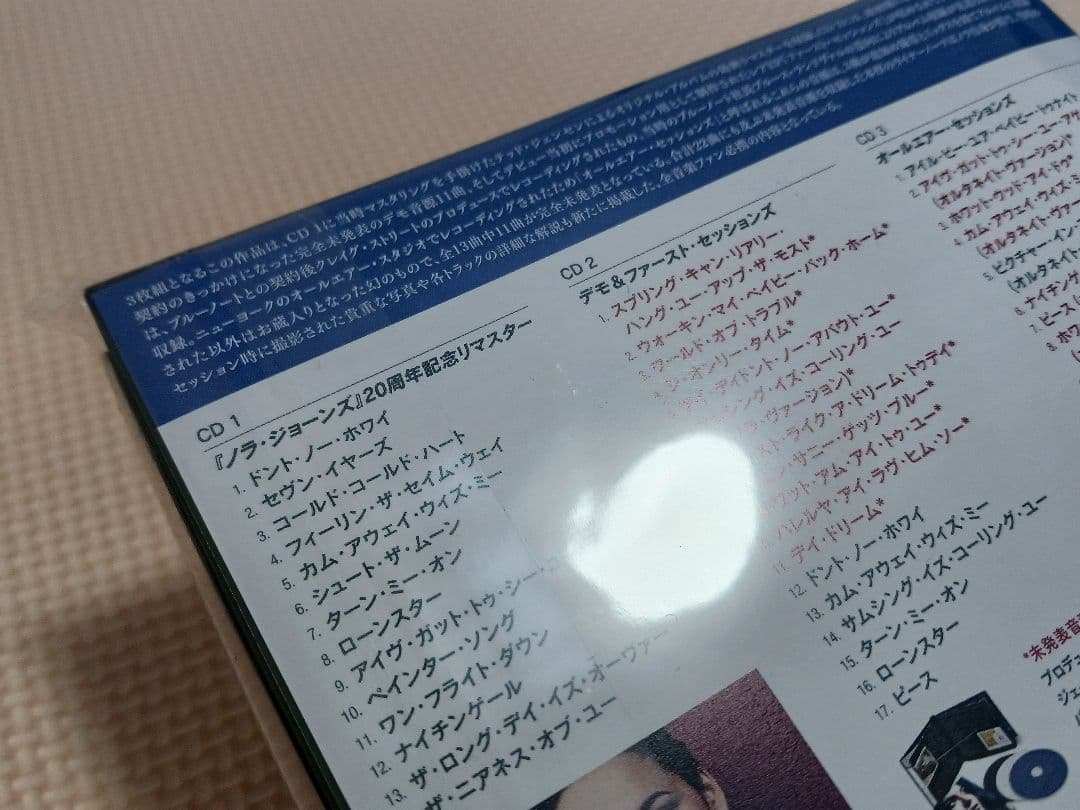 3枚組となるこの作品は、CD 1に当時マスタリングを手掛けたテッド・ジェンセンによるオリジナル・アルバムの
契約のきっかけになった完全未発表のデモ音源11曲、そしてデビュー当初にプロモーション用として
は、ブルーノートとの契約後クレイグ・ストリートのプロデュースでレコーディングされたもの。当時のブルーノート社長ブルース・
収録。ニューヨークのオールエアー・スタジオでレコーディングされたため「オールエアー・セッションズ」と呼ばれる
された以外はお蔵入りとなった幻のもので、全13曲中11曲が完全未発表となっている。合計22曲にも及ぶ未発表音源を
セッション時に撮影された貴重な写真や各トラックの詳細な解説も新たに掲載した、全音楽ファン必携の内容となっている。
CD 1
『ノラ・ジョーンズ』20周年記念リマスター
1. ドント・ノー・ホワイ
2. セヴン・イヤーズ
3. コールド・コールド・ハート
4. フィーリン・ザ・セイム・ウェイ
5. カム・アウェイ・ウィズ・ミー
6. シュート・ザ・ムーン
7. ターン・ミー・オン
8. ローンスター
9. アイヴ・ガット・トゥ・シー・
10. ペインター・ソング
11. ワン・フライト・ダウン
12. ナイチンゲール
13. ザ・ロング・デイ・イズ・オーヴァー
ザ・ニアネス・オブ・ユー
CD 2
デモ&ファースト・セッションズ
1. スプリング・キャン・リアリー・
ハング・ユー・アップ・ザ・モスト*
2. ウォーキン・マイ・ベイビー・バック・ホーム*
3. ワールド・オブ・トラブル*
オンリー・タイム*
ディドント・ノー・アバウト・ユー*
シング・イズ・コーリング・ユー
ヴァージョン)*
スト・ライク・ア・ドリーム・トゥデイ*
ン・サニー・ゲッツ・ブルー*
ワット・アム・アイ・トゥ・ユー*
ハレルヤ・アイ・ラヴ・ヒム・ソー*
11. デイ・ドリーム*
12. ドント・ノー・ホワイ
13. カム・アウェイ・ウィズ・ミー
14. サムシング・イズ・コーリング・ユー
15. ターン・ミー・オン
16. ローンスター
17. ピース
CD 3
オールエアー・セッションズ
1. アイル・ビー・ユア・ベイビー・トゥナイト
2. アイヴ・ガット・トゥ・シー・ユー・アゲ
(オルタネイト・ヴァージョン)
3. ホワット・ウッド・アイ・ドゥ*
4. カム・アウェイ・ウィズ・ミ
(オルタネイト・ヴァー
5. ピクチャー・イン・
(オルタネイト・
6. ナイチンゲ
7. ピース(
8. ホワ
*未発表音
プロデュ
ジェ